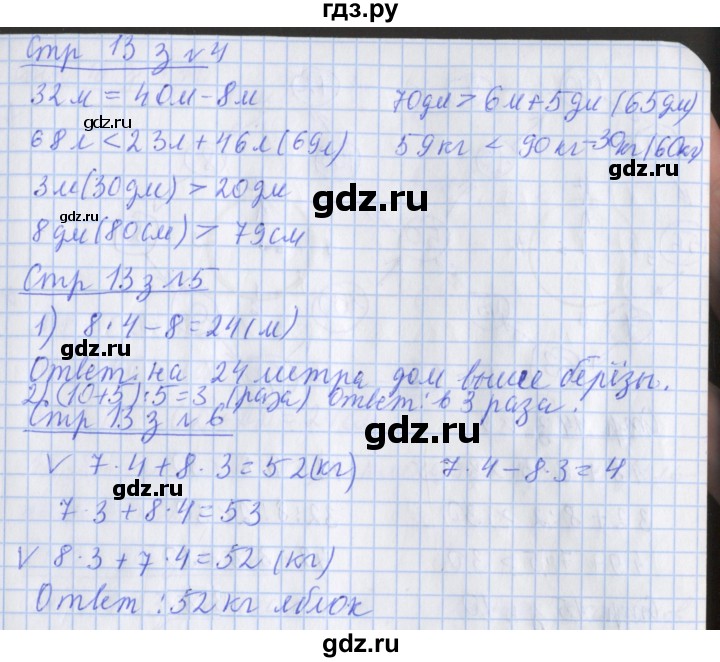 гдз.ру
Стр 13 з №4
32м = 40м - 8м 70дм > 6м + 5дм (65дм)
gdz.ru
68л < 23л + 46л (69л) 59кг < 90кг - 30кг (60кг)
gdz.ru
3м (30дм) > 20дм
gdz.ru
gdz.ru
8дм (80см) > 79см
Стр 13 з №5
1) 8 · 4 - 8 = 24 (м)
gdz.ru
gdz.ru
Ответ: на 24 метра дом выше берёзы.
2. (10+5):5=3 (раза) ответ: в 3 раза.
Стр 13 з №6
gdz.ru
V 7 · 4 + 8 · 3 = 52 (кг) 7 · 4 - 8 · 3 = 4
gdz.ru
7 · 3 + 8 · 4 = 53
V 8 · 3 + 7 · 4 = 52 (кг)
gdz.ru
gdz.ru
Ответ: 52 кг яблок
gdz.ru